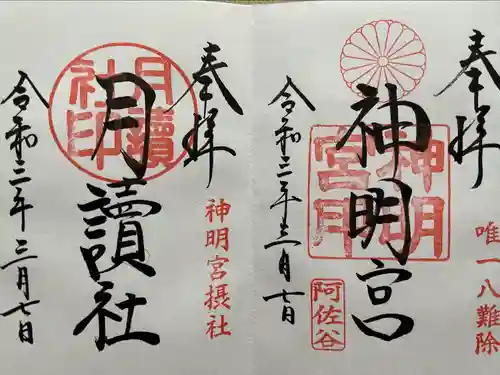 奉拝
唯一八難除
神明宮
神明
宮
阿佐谷
令和三年三月七日
奉拝
神明宮摂社
月讀社
月讀
社印
令和三年三月七日